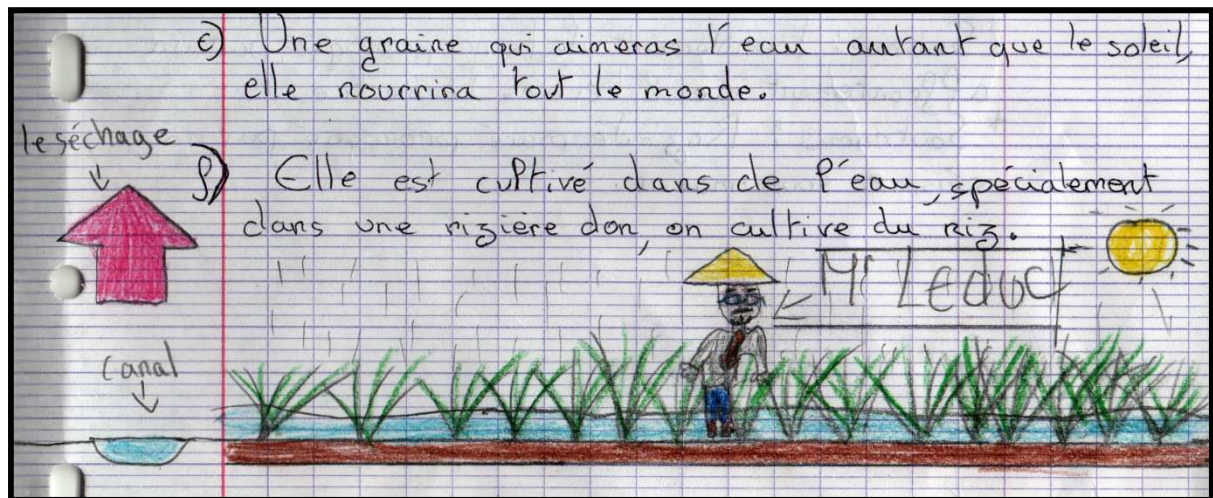 e) Une graine qui aimeras l'eau autant que le soleil,
elle nourrira tout le monde.
le séchage
f) Elle est cultivé dans de l'eau, spécialement
dans une rizière don, on cultive du riz.
Mr Leduc
canal